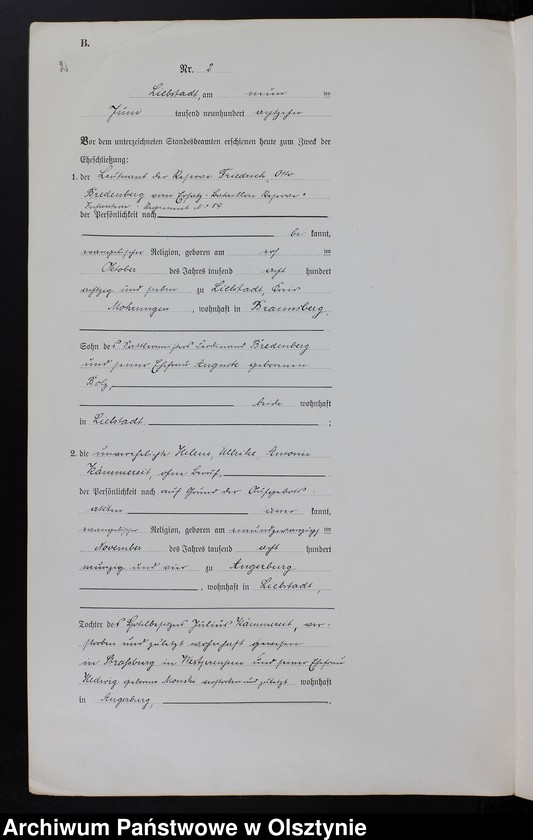 B.
Nr. 2
Liebstadt, am neun ten
Juni tausend neunhundert achtzehn
Vor dem unterzeichneten Standesbeamten erschienen heute zum Zweck der
Eheschließung:
1. der Leutnant der Reserve Friedrich, Otto
Bredenberg vom Ersatz-Bataillon Reserve-
Infanterie-Regiment No 59
der Persönlichkeit nach
be kannt,
evangelischer Religion, geboren am ten
Oktober des Jahres tausend acht hundert
achtzig und sieben zu Liebstadt, Kreis
Mohrungen, wohnhaft in Braunsberg,
Sohn des Sattlermeisters Ferdinand Bredenberg
und seiner Ehefrau Auguste geborenen
beide wohnhaft
in Liebstadt ;
2. die unverehelichte Helene, Ulrike, Antonie
Kämmereit, ohne Beruf,
der Persönlichkeit nach auf Grund der Aufgebots-
akten aner kannt,
evangelischer Religion, geboren am einundzwanzigsten
November des Jahres tausend acht hundert
neunzig und vier zu Angerburg
, wohnhaft in Liebstadt,
Tochter des Hotelbesitzers Julius Kämmereit, ver-
storben und zuletzt wohnhaft gewesen
in Strasburg in Westpreussen und seiner Ehefrau
Hedwig geborene Monska verstorben und zuletzt wohnhaft
in Angerburg,
Archiwum Państwowe w Olsztynie